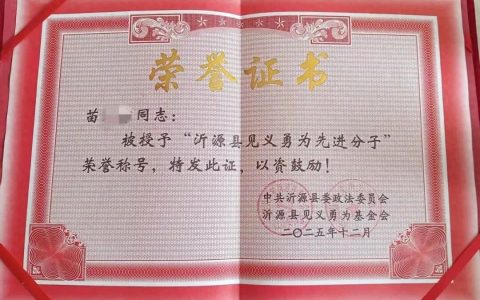 荣誉证书
苗 同志：
被授予“沂源县见义勇为先进分子”
荣誉称号，特发此证，以资鼓励！
中共沂源县委政法委员会
沂源县见义勇为基金会
二〇二五年十二月